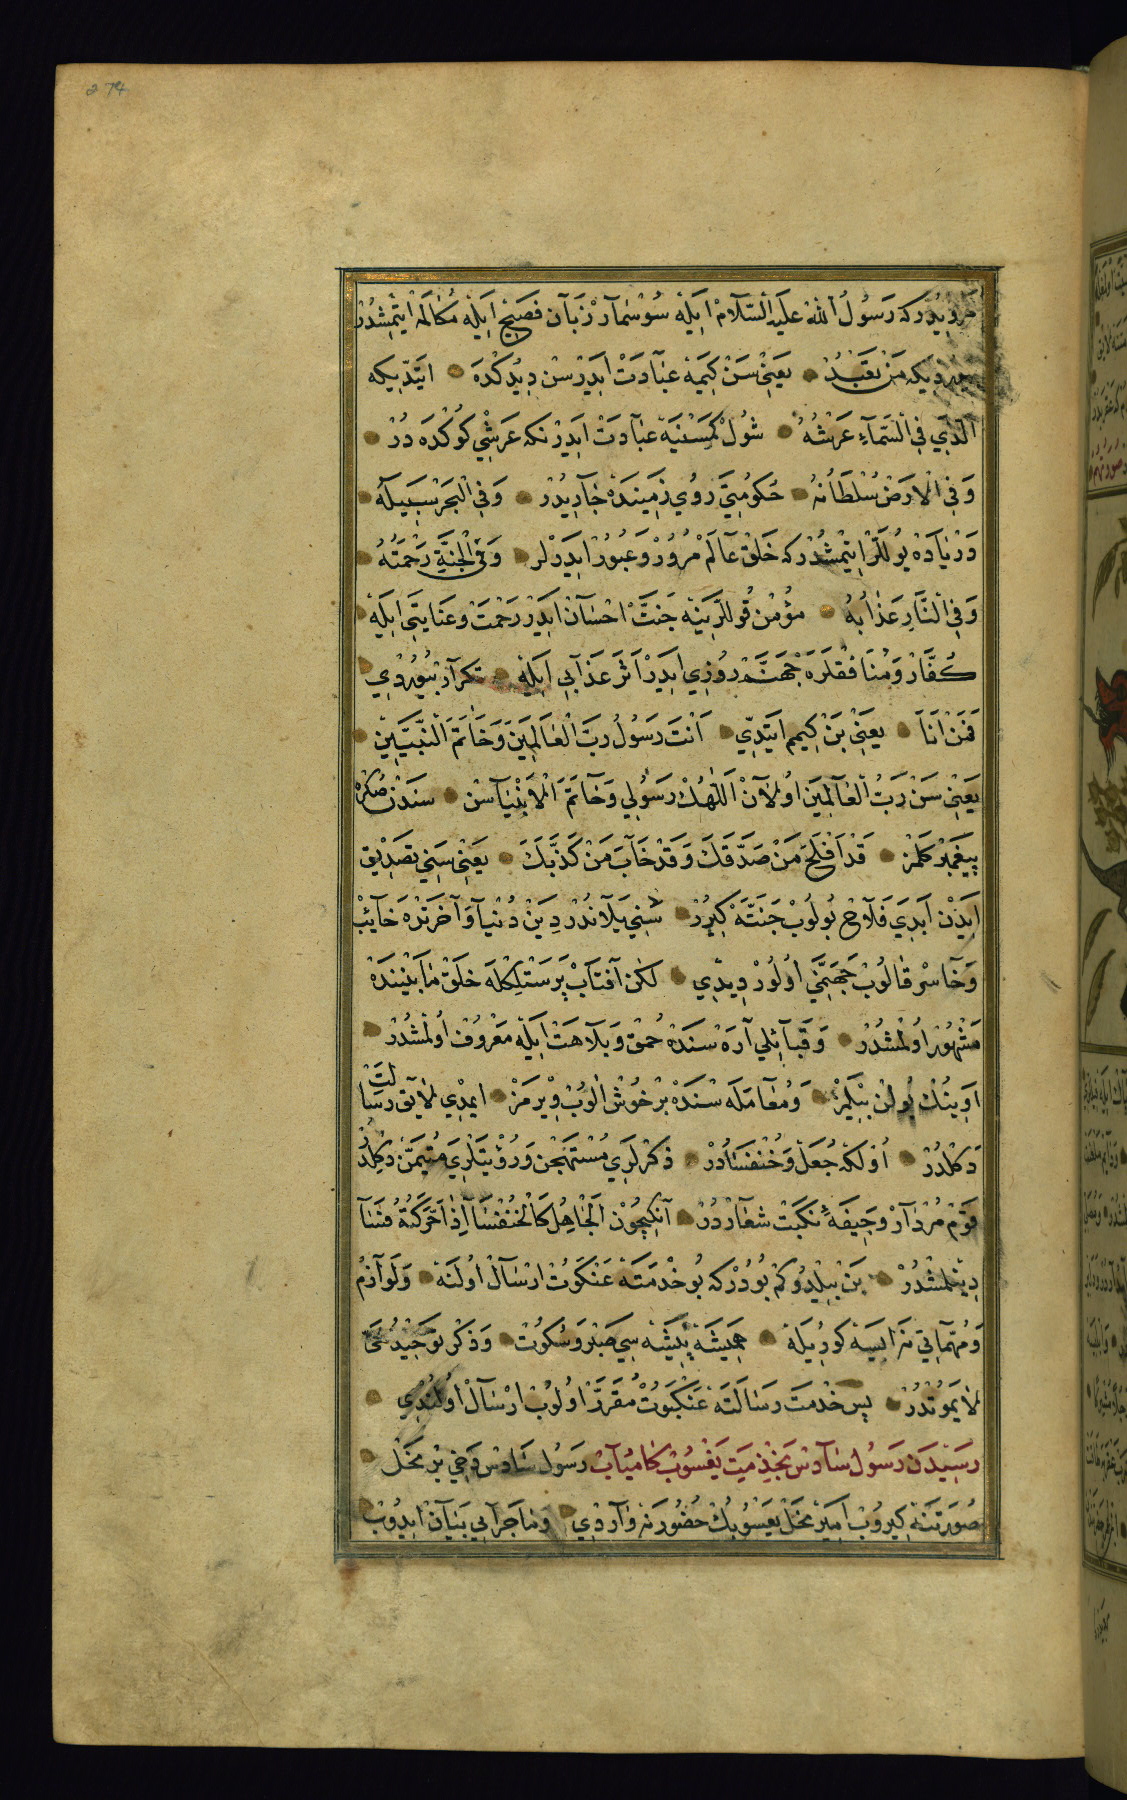 274
مرويدركه رسول الله عليه السلام ايله سوسمار زبان فصيح ايله مكالمه ايتمشدر
من تعبد يعني سن كيمه عبادت ايدرسن ديدكده ايتديكه
الذي في السماء عرشه شول كمسنيه عبادت ايدرنكه عرشي كوكده در
وفي الارض سلطانه حكومتي روي زمينده جاريدر وفي البحر سبيله
ودرياده يوللر ايتمشدركه خلق عالم مرور وعبور ايدرلر وفي الجنة رحمته
وفي النار عذابه مؤمن قوللرينه جنت احسان ايدر رحمت وعنايتي ايله
كفار ومنافقلره جهنم روزي ايدر اثر عذابي ايله تكرار بيوردي
فمن انا يعني بن كيمم ايتدي انت رسول رب العالمين وخاتم النبيين
يعني سن رب العالمين اولان اللهك رسولي وخاتم الانبياسن سندن صكره
پيغمبر كلمز قد افلح من صدقك وقد خاب من كذبك يعني سني تصديق
ايدن ابدي فلاح بولوب جنته كيرر سني يلاندر دين دنيا وآخرتده خائب
وخاسر قالوب جهنمي اولور ديدي لكن آفتاب پرستلكله خلق مابيننده
مشهور اولمشدر وقبائلي آره سنده حمق وبلاهت ايله معروف اولمشدر
اوينك يولن بيلمز ومعامله سنده بر خوش الوب ويرمز ايمدي لايق رسالت
دكلدر اولكه جعل وخنفسادر ذكرلري مستهجن ورؤيتلري متيمن دكلدر
قوم مردار وجيفه نكبت شعاردر آنكيچون الجاهل كالخنفساء اذا حركته فسا
ديمشلردر بن بيلدوكم بودركه بو خدمته عنكبوت ارسال اولنه ولوازم
ومهماتي نه ايسه كوريله هميشه پيشه سي صبر وسكوت وذكر توحيد حي
لايموتدر پس خدمت رسالته عنكبوت مقرر اولوب ارسال اولندي
رسيدن رسول سادس بخدمت يعسوب كامياب رسول سادس دخي بر نحل
صورتنه كيروب امير نحل يعسوبك حضورنه واردي وماجرايي بيان ايدوب